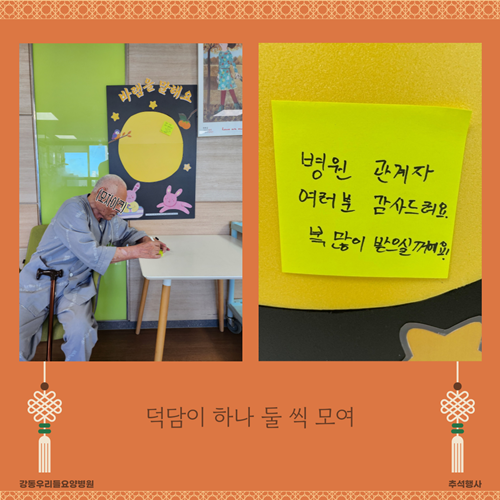 말해요
모자이크
병원 관계자
여러분 감사드려요.
복 많이 받으실꺼예요!
덕담이 하나 둘 씩 모여
강동우리들요양병원
추석행사